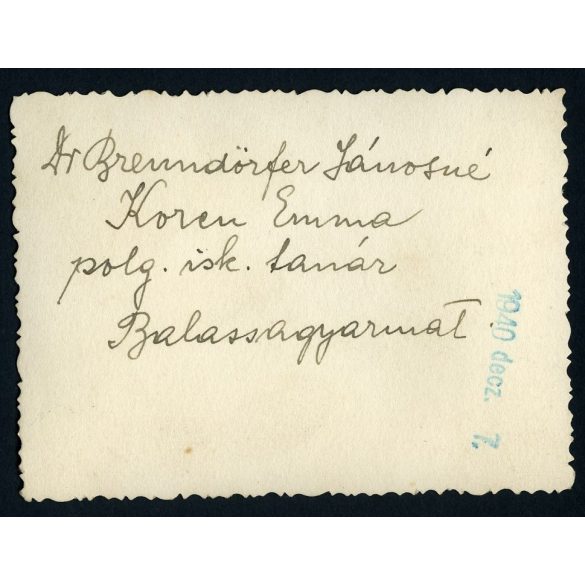 Dr Brenndörfer Jánosné
Koren Emma
polg. isk. tanár
Balassagyarmat.
1940 decz. 7.